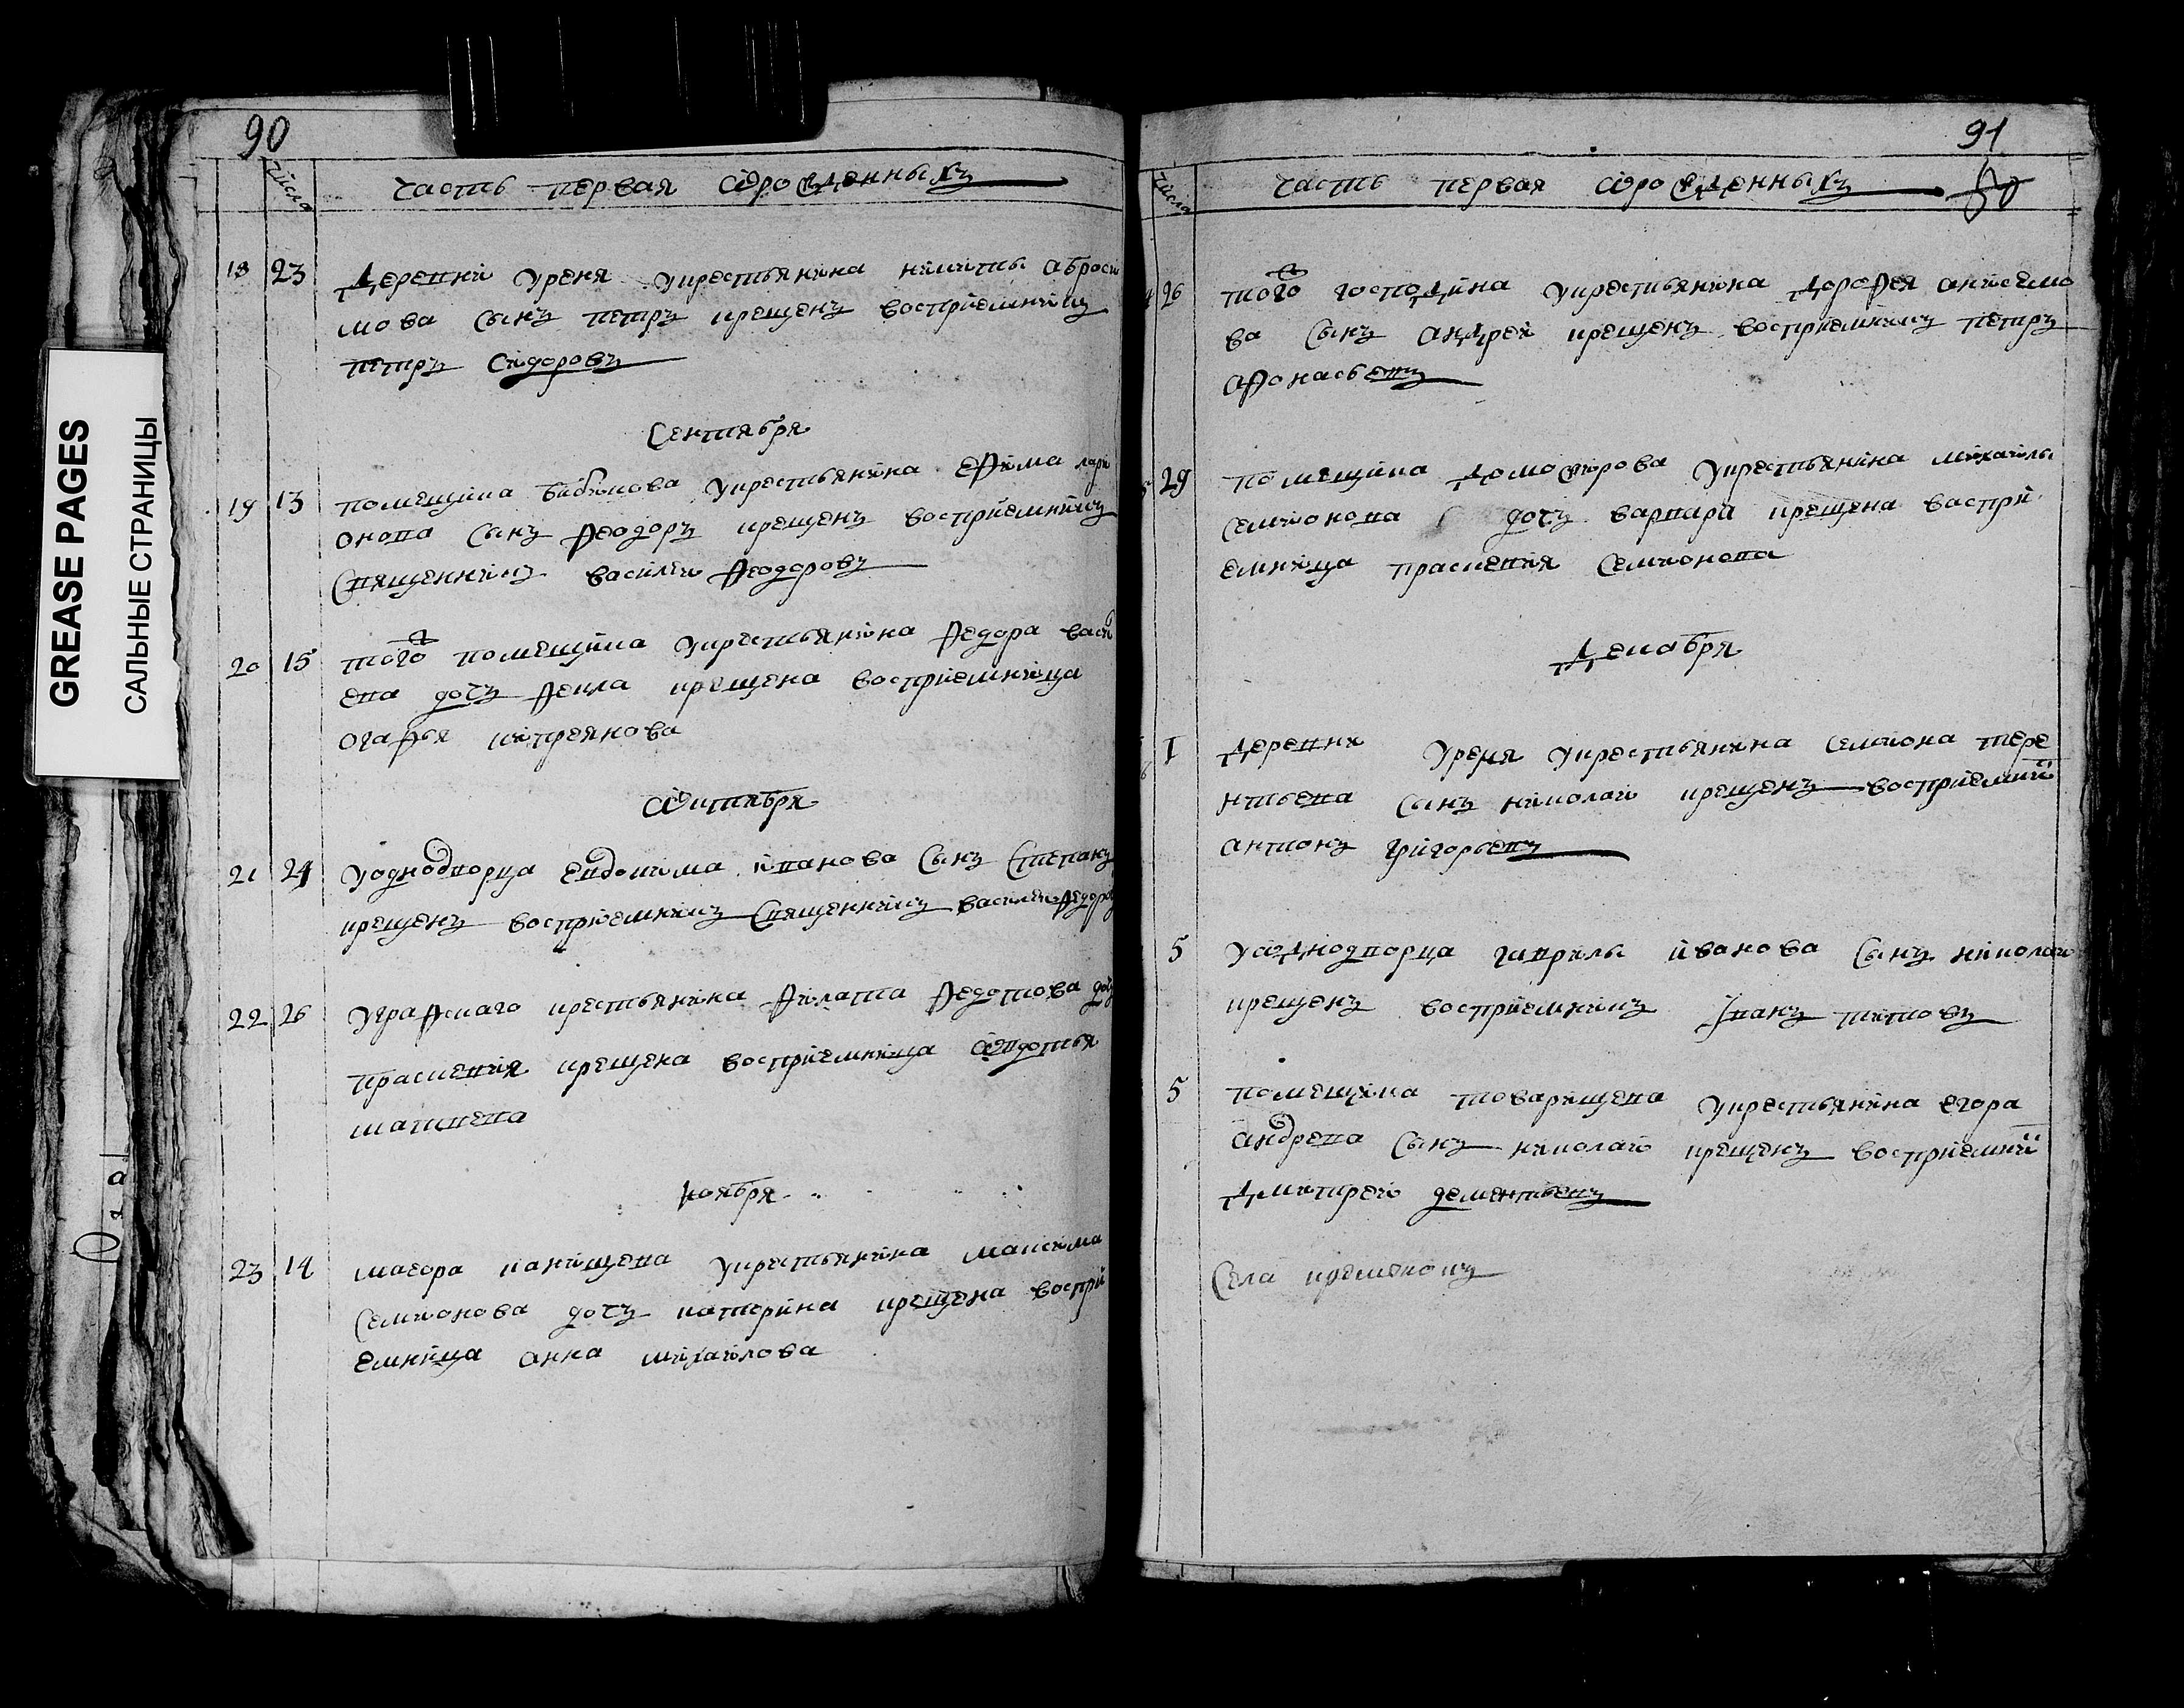 90
числа
часть первая ѡрожденныхъ
18 23 деревни Уреня укрестьянина никиты абраси
мова сынъ петръ крещенъ восприемникъ
петръ Сидоровъ
Сентября
19 13 помещика бибикова укрестьянина ефима лари
онова сынъ феодоръ крещенъ восприемникъ
Священникъ василей феодоровъ
20 15 того помещика укрестьянина федора васи
ева дочь фекла крещена восприемница
огафья
ѡктября
21 24 Уоднодворца евдокима иванова сынъ Степанъ
крещенъ восприемникъ Священникъ василей федоров
22 26 Уграфскаго крестьянина филата федотова дочь
прасковия крещена восприемница
матвева
ноября
23 14 маеора панищева укрестьянина максима
Семионова дочь катерина крещена воспри
емница анна михаилова
GREASE PAGES
САЛЬНЫЕ СТРАНИЦЫ
91
80
числа
часть первая ѡрожденныхъ
26 того господина укрестьянина дорофея анисемо
ва сынъ андрей крещенъ восприемникъ петръ
афонасьевъ
29 помещика доможирова укрестьянина михаилы
семионова дочь варвара крещена воспри
емница прасковия Семионова
декабря
1 деревни Уреня укрестьянина семиона тере
нтьева сынъ николай крещенъ восприемник
антонъ григорьевъ
5 Уоднодворца гаврилы иванова сынъ николай
крещенъ восприемникъ Iванъ титовъ
5 помещика товарищева укрестьянина егора
андрева сынъ николай крещенъ восприемник
дмитрей дементьевъ
Села кременокъ